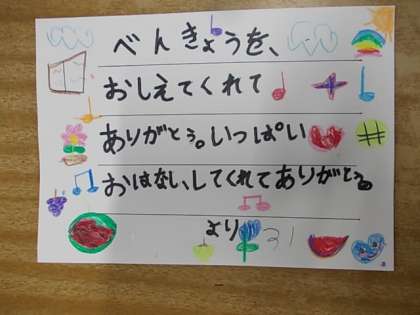 べんきょうを、
おしえてくれて
ありがとう。いっぱい
おはない、してくれてありがとう。
より